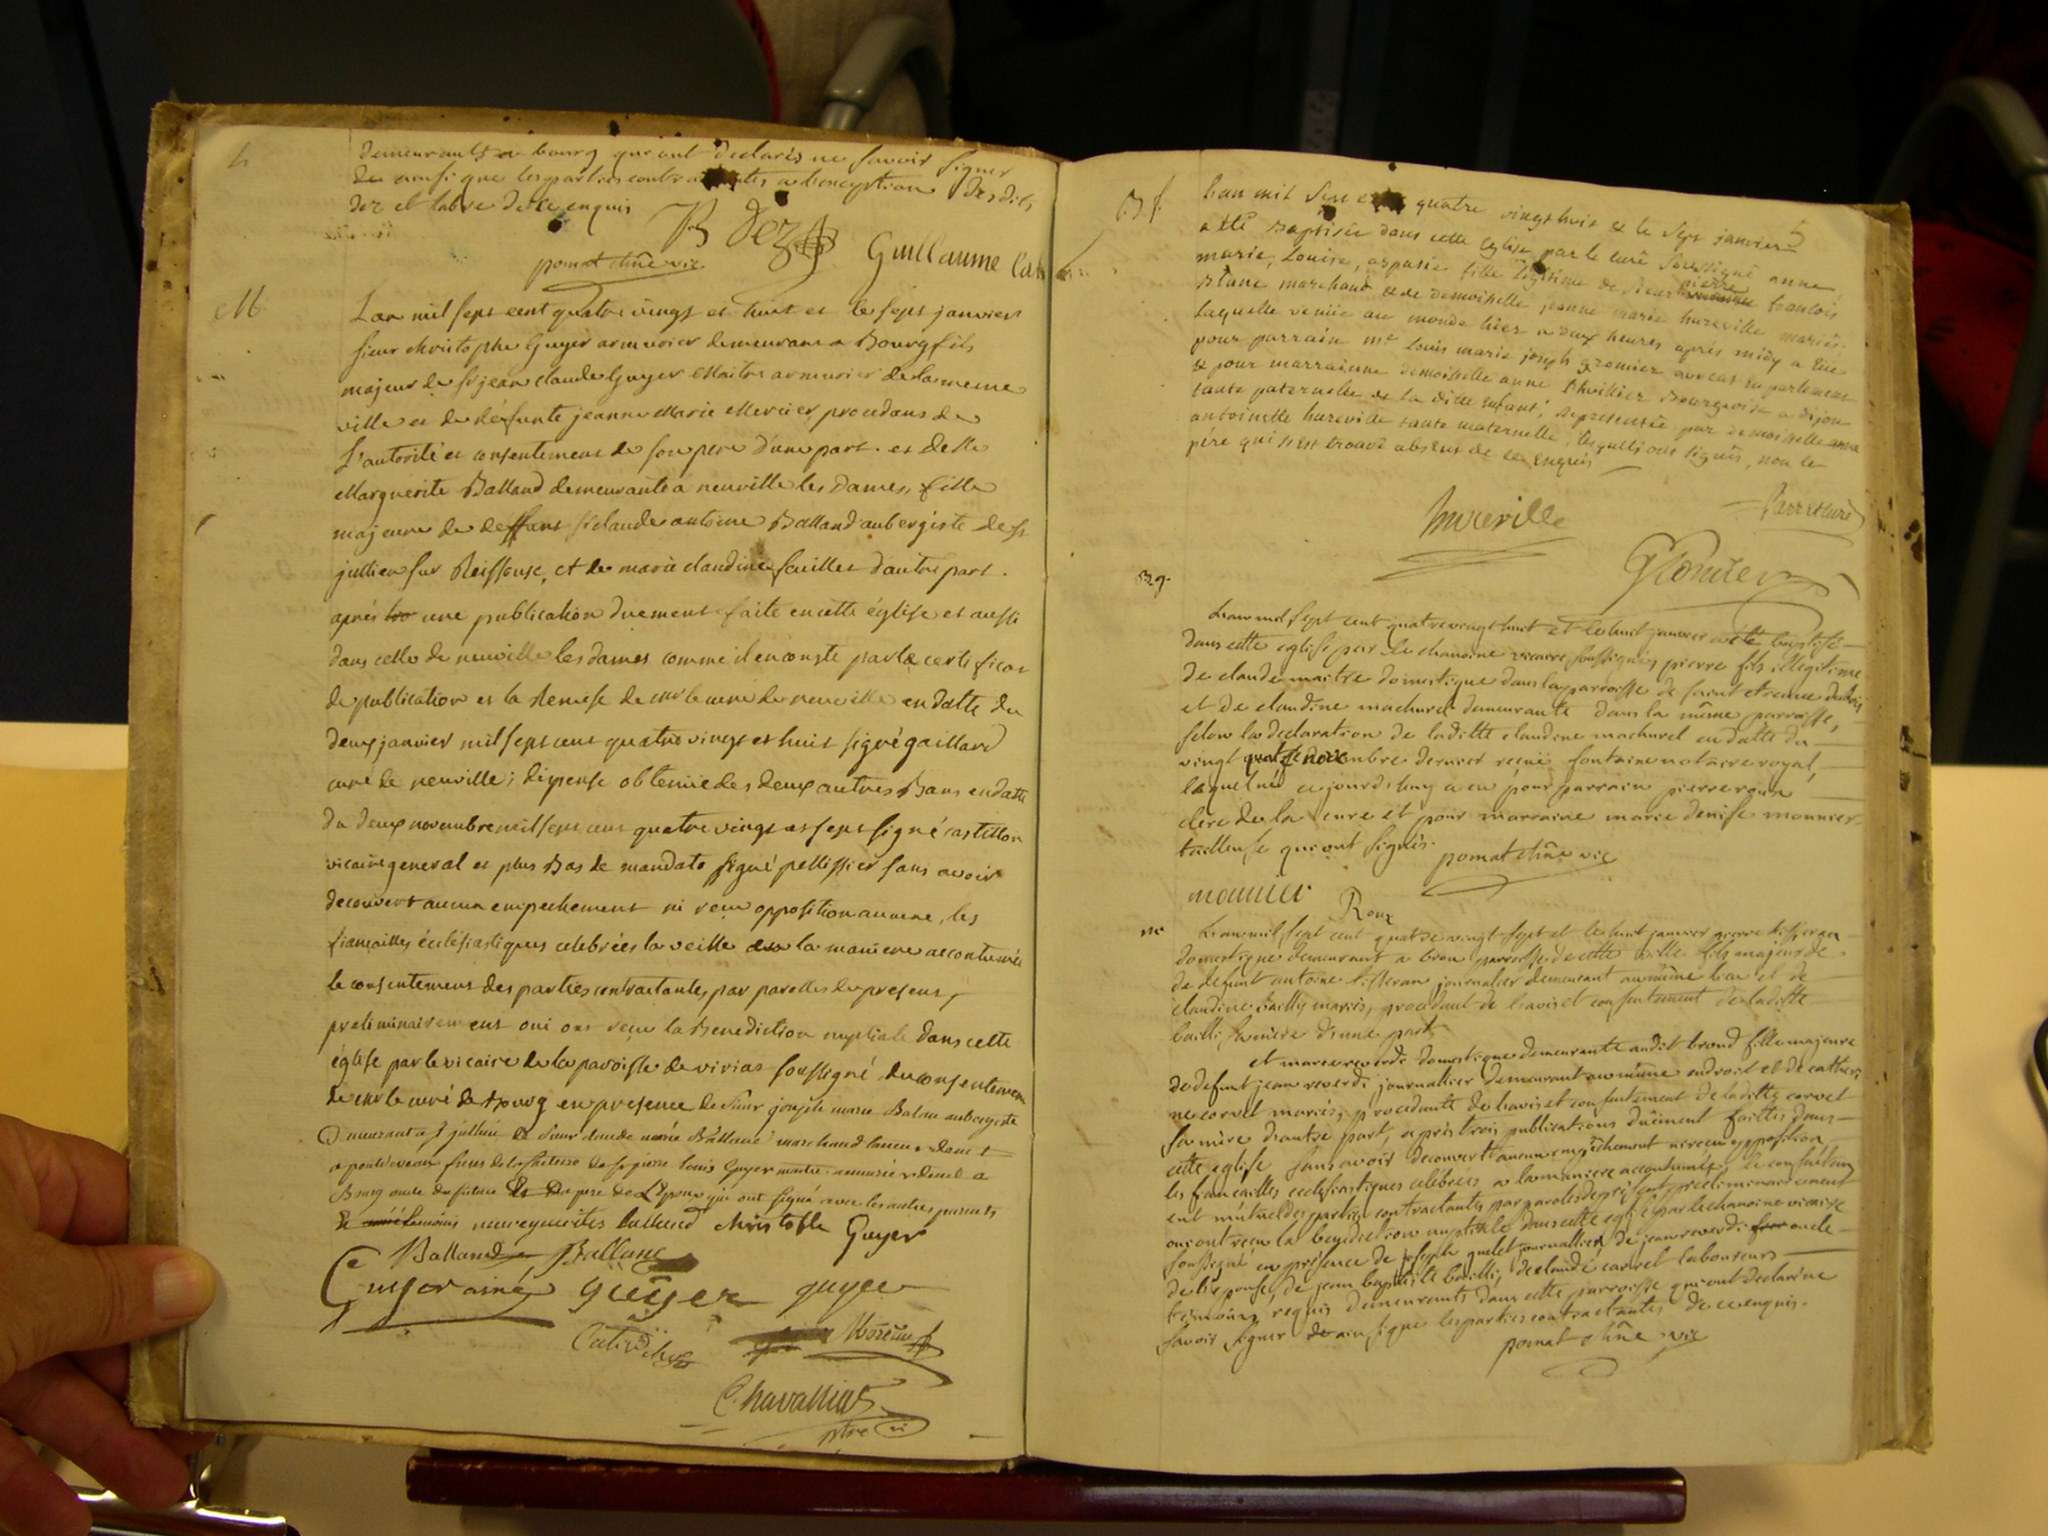 demeurants a bourg qui ont declarés ne savoir signer
de ainsi que les parties contractantes a l'exception desdits
dez et labre de ce enquis
B Dez
Guillaume
pomat chne vic
M
L'an mil sept cent quatre vingt et huit et le sept janvier
sieur christophe Guyer armurier demeurant a Bourg fils
majeur de sr jean claude Guyer Maitre armurier de la meme
ville et de défunte jeanne Marie Mercier, procedans de
L'autorité et consentement de son pere d'une part. et delle
Marguerite Balland demeurante a neuville les dames, fille
majeure de deffunt sr claude antoine Balland aubergiste de st
jullien sur Reissouse, et de marie claudine feuillet d'autre part.
aprés une publication duement faite en cette église et aussi
dans celle de neuville les dames comme il en conste par le certificat
de publication et la Remise de mr le curé de neuville en datte du
deux janvier mil sept cent quatre vingt et huit signé gaillard
curé de neuville; dispense obtenüe des deux autres Bans en datte
du deux novembre mil sept cent quatre vingt et sept signé castillon
vicaire general et plus Bas de mandato signé pellissier sans avoir
decouvert aucun empechement ni reçu opposition aucune, les
fiançailles écclésiastiques celebrées la veille a la maniere accoutumée
le consentement des parties contractantes, par parolles de present,
preliminairement oui ont reçu la Benediction nuptiale dans cette
église par le vicaire de la paroisse de viriat soussigné du consentement
de mr le curé de Bourg en presence de sieur joseph marie Balland aubergiste
Demeurant a st jullien de sieur claude marie Balland marchand
a pontdevaux freres de la future de sr pierre louis Guyer maitre armurier
Bourg oncle du futur du pere de L'Epoux qui ont signé avec les autres parents
temoins requis marguerites balland christofle Guyer
Balland Balland
Guyer ainé guÿer guyer
Moreau
Chavallias
ptre vi
5
B. f.
L'an mil sept cent quatre vingt huit & le sept janvier
a été Baptisée dans cette Eglise par le curé soussigné anne
marie, Louise, aspasie fille legitime de sieur pierre francois
marchand & de demoiselle jeanne marie hureville mariés.
laquelle venüe au monde hier a deux heures après midy a eue
pour parrain mr louis marie joseph gromier avocat en parlement
& pour marrainne demoiselle anne thevillier Bourgeoise a dijon
tante paternelle de la ditte enfant, representée par demoiselle anne
antoinette hureville tante maternelle, lesquels ont signés, non le
père qui s'est trouvé absent de ce enquis
hureville
Gromier
Bg.
L'an mil sept cent quatre vingt huit et le huit janvier a été baptisé
dans cette eglise par le chanoine vicaire soussigné pierre fils illegitime
de claude maitre domestique dans la parroisse de saint etienne du bois
et de claudine machurel demeurante dans la même parroisse,
selon la declaration de laditte claudine machurel en datte du
vingt quatre novembre dernier reçüe fontaine notaire royal,
lequel né aujourd'huy a eu pour parrain pierre roux
clerc de la cure et pour marraine marie denise monnier
tailleuse qui ont signés.
pomat chne vic
monnier
Roux
m
L'an mil sept cent quatre vingt sept et le huit janvier pierre tisseran
domestique demeurant a brou parroisse de cette ville fils majeur de
de defunt antoine tisseran journalier demeurant au même lieu et de
claudine Bailly mariés, procedant de l'avis et consentement de laditte
bailli sa mère d'une part,
et marie reverdi domestique demeurante audit brou fille majeure
de defunt jean reverdi journallier demeurant au même endroit et de catheri
ne corvet mariés, procedante de l'avis et consentement de laditte corvet
sa mère d'autre part, après trois publications dûement faittes dans
cette eglise sans avoir decouvert aucun empêchement ni reçu opposition
les fiancailles ecclésiastiques célébrées a la maniere accoutumée, le consentem
ent mutuel des parties contractantes par paroles de présent préliminairement
oui ont reçu la benediction nuptiale dans cette eglise par le chanoine vicaire
soussigné en présence de joseph guelet journallier, de jean reverdi oncle
de l'epouse, de jean baptiste bailli, de claude corvet laboureurs
temoins requis demeurants dans cette parroisse qui ont declaré ne
savoir signer de ainsi que les parties contractantes de ce enquis.
pomat chne vic